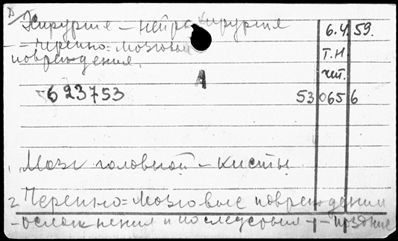 Хирургия – нейрохирургия 6.4.59.
– Черепно=мозговые Т.Н.
повреждения. чит.
А
623753 53 065 6
1. Мозг головной – кисты
2 Черепно=мозговые повреждения
– осложнения и последствия –